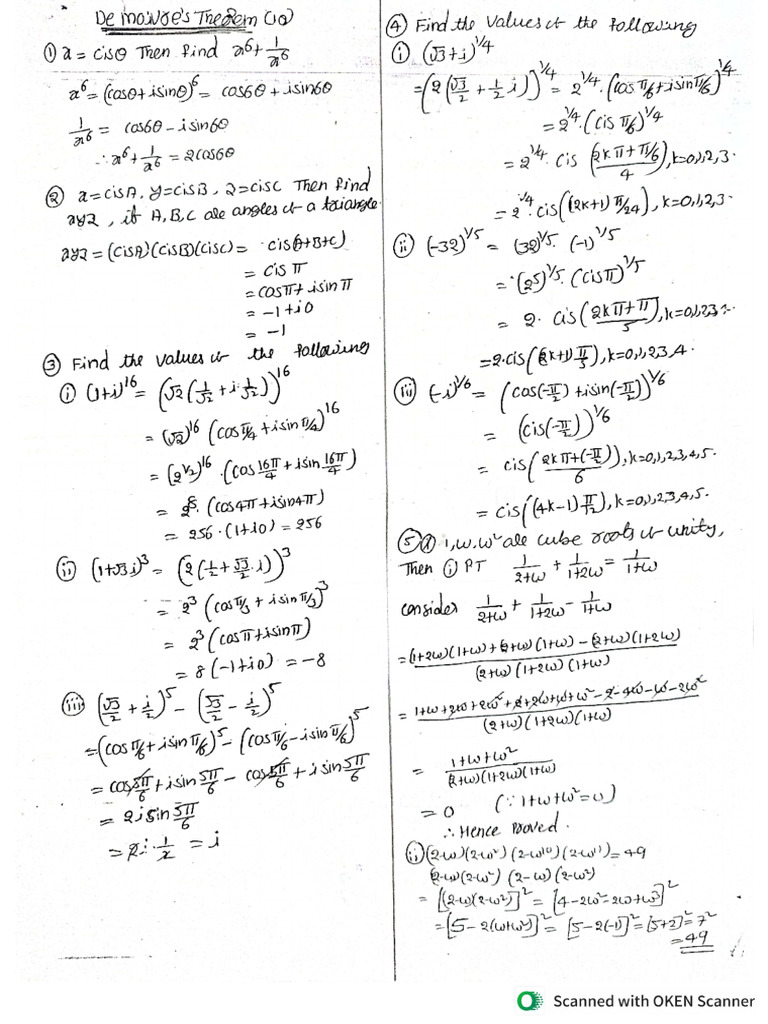 De moivre's Theorem (1Q)
① x = cisθ Then find x⁶ + 1/x⁶
x⁶ = (cosθ + isinθ)⁶ = cos6θ + isin6θ
1/x⁶ = cos6θ - isin6θ
∴ x⁶ + 1/x⁶ = 2cos6θ
② x = cisA, y = cisB, z = cisC Then find
xyz, if A, B, C are angles of a triangle.
xyz = (cisA)(cisB)(cisC) = cis(A+B+C)
= cis π
= cosπ + isinπ
= -1 + i0
= -1
③ Find the values of the following
i (1+i)¹⁶ = (√2(1/√2 + i·1/√2))¹⁶
= (√2)¹⁶ (cosπ/4 + isinπ/4)¹⁶
= (2^1/2)¹⁶ · (cos16π/4 + isin16π/4)
= 2⁸ · (cos4π + isin4π)
= 256 · (1+i0) = 256
ii (1+√3i)³ = (2(1/2 + √3/2 i))³
= 2³ (cosπ/3 + isinπ/3)³
= 2³ (cosπ + isinπ)
= 8(-1+i0) = -8
iii (√3/2 + i/2)⁵ - (√3/2 - i/2)⁵
= (cosπ/6 + isinπ/6)⁵ - (cosπ/6 - isinπ/6)⁵
= cos5π/6 + isin5π/6 - cos5π/6 + isin5π/6
= 2isin5π/6
= 2i · 1/2 = i
④ Find the values of the following
i (√3+i)^1/4
= (2(√3/2 + 1/2 i))^1/4 = 2^1/4 · (cosπ/6 + isinπ/6)^1/4
= 2^1/4 · (cisπ/6)^1/4
= 2^1/4 · cis((2kπ+π/6)/4), k=0,1,2,3.
= 2^1/4 · cis((12k+1)π/24), k=0,1,2,3.
ii (-32)^1/5 = (32)^1/5 · (-1)^1/5
= (2⁵)^1/5 · (cisπ)^1/5
= 2 · cis((2kπ+π)/5), k=0,1,2,3..
= 2·cis((2k+1)π/5), k=0,1,2,3,4.
iii (-i)^1/6 = (cos(-π/2) + isin(-π/2))^1/6
= (cis(-π/2))^1/6
= cis((2kπ+(-π/2))/6), k=0,1,2,3,4,5.
= cis((4k-1)π/12), k=0,1,2,3,4,5.
⑤ If 1, ω, ω² are cube roots of unity,
Then i PT 1/(2+ω) + 1/(1+2ω) = 1/(1+ω)
consider 1/(2+ω) + 1/(1+2ω) - 1/(1+ω)
= ((1+2ω)(1+ω) + (2+ω)(1+ω) - (2+ω)(1+2ω))/((2+ω)(1+2ω)(1+ω))
= (1+ω+2ω+2ω²+2+2ω+ω+ω²-2-4ω-ω-2ω²)/((2+ω)(1+2ω)(1+ω))
= (1+ω+ω²)/((2+ω)(1+2ω)(1+ω))
= 0 (∵ 1+ω+ω²=0)
∴ Hence proved.
ii (2-ω)(2-ω²)(2-ω¹⁰)(2-ω¹¹) = 49
(2-ω)(2-ω²)(2-ω)(2-ω²)
= [(2-ω)(2-ω²)]² = [4-2ω²-2ω+ω³]²
= [5-2(ω+ω²)]² = [5-2(-1)]² = [5+2]² = 7²
= 49
Scanned with OKEN Scanner